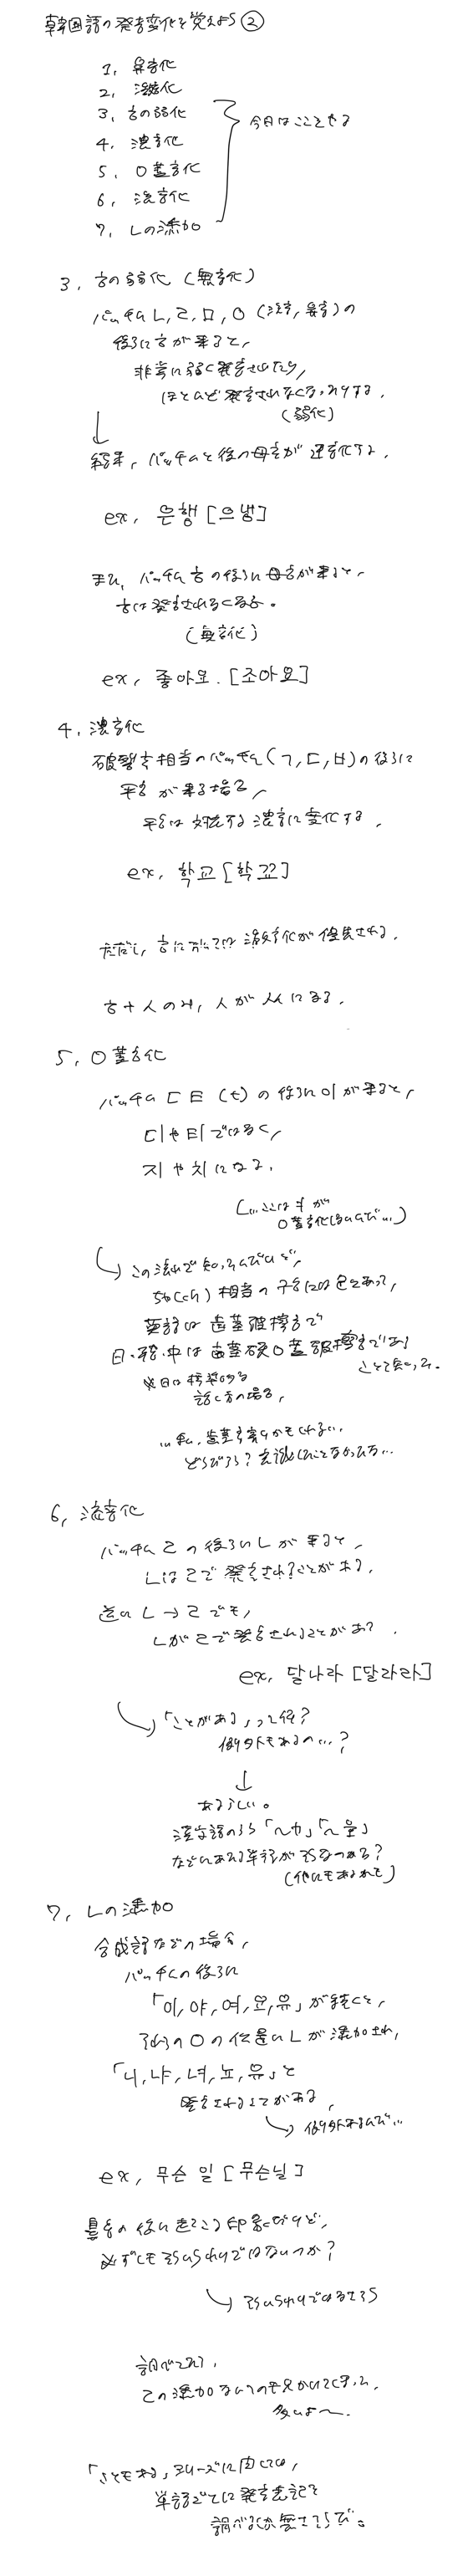 韓国語の発音変化を覚えよう②
1, 鼻音化
2, 激音化
3, ㅎの弱化
4, 濃音化
5, 口蓋音化
6, 流音化
7, ㄴの添加
今日はここをやる
3, ㅎの弱化 (無音化)
パッチム ㄴ, ㄹ, ㅁ, ㅇ (流音, 鼻音) の
後ろにㅎが来ると,
非常に弱く発音されたり,
ほとんど発音されなくなったりする.
(弱化)
結果, パッチムと後の母音が連音化する.
ex, 은행 [으냉]
また, パッチムㅎの後ろに母音が来ると,
ㅎは発音されなくなる。
(無音化)
ex, 좋아요. [조아요]
4, 濃音化
破裂音相当のパッチム (ㄱ, ㄷ, ㅂ) の後ろに
平音が来る場合,
平音は対応する濃音に変化する.
ex, 학교 [학꾜]
ただし, ㅎに ては激音化が優先される.
ㅎ+ㅅのみ, ㅅがㅆになる.
5, 口蓋音化
パッチムㄷㅌ(t)の後ろに이が来ると,
디や티ではなく,
지や치になる.
(…ここは が
口蓋音化 …)
この流れで知ったんだけど,
ち(ch)相当の子音には色々あって,
英語は歯茎 擦音で
日・韓・中は歯茎硬口蓋破擦音である
ことを知った.
※日は標準的な
話し方の場合,
…私, 歯茎 かもしれない…
どうだろう?意識したことなかったな…
6, 流音化
パッチムㄹの後ろにㄴが来ると,
ㄴはㄹで発音されることがある.
逆のㄴ→ㄹでも,
ㄴがㄹで発音されることがある.
ex, 달나라 [달라라]
「ことがある」って何?
例外もあるの…?
↓
あるらしい。
漢字語のうち「〜力」「〜量」
などにあたる単語がそうなってる?
(他にもあるかも)
7, ㄴの添加
合成語などの場合,
パッチムの後ろに
「이, 야, 여, 요, 유」が続くと,
それらのㅇの位置にㄴが添加され,
「니, 냐, 녀, 뇨, 뉴」と
発音されることがある,
例外あるんだ…
ex, 무슨 일 [무슨닐]
鼻音の後に起こる印象だけど,
必ずしもそういうわけではないのか?
そういうわけではなさそう
調べてみた,
この添加ないのも見かけてしまった,
多いよ〜.
「こともある」シリーズに関しては,
単語ごとに発音表記を
調べるしか無さそうだ。